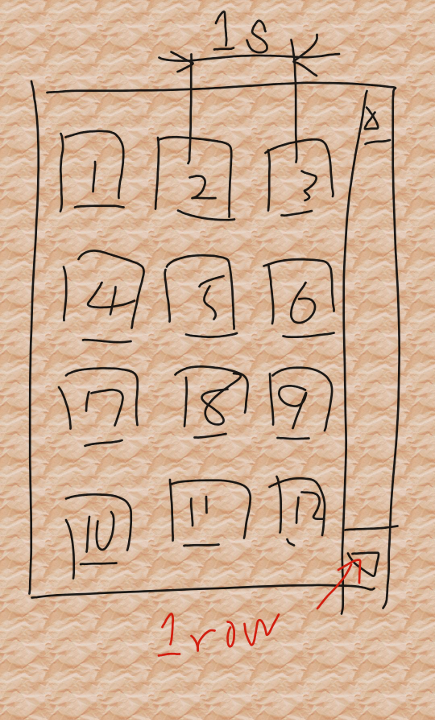 1s
1 2 3
4 5 6
7 8 9
10 11 12
1 row